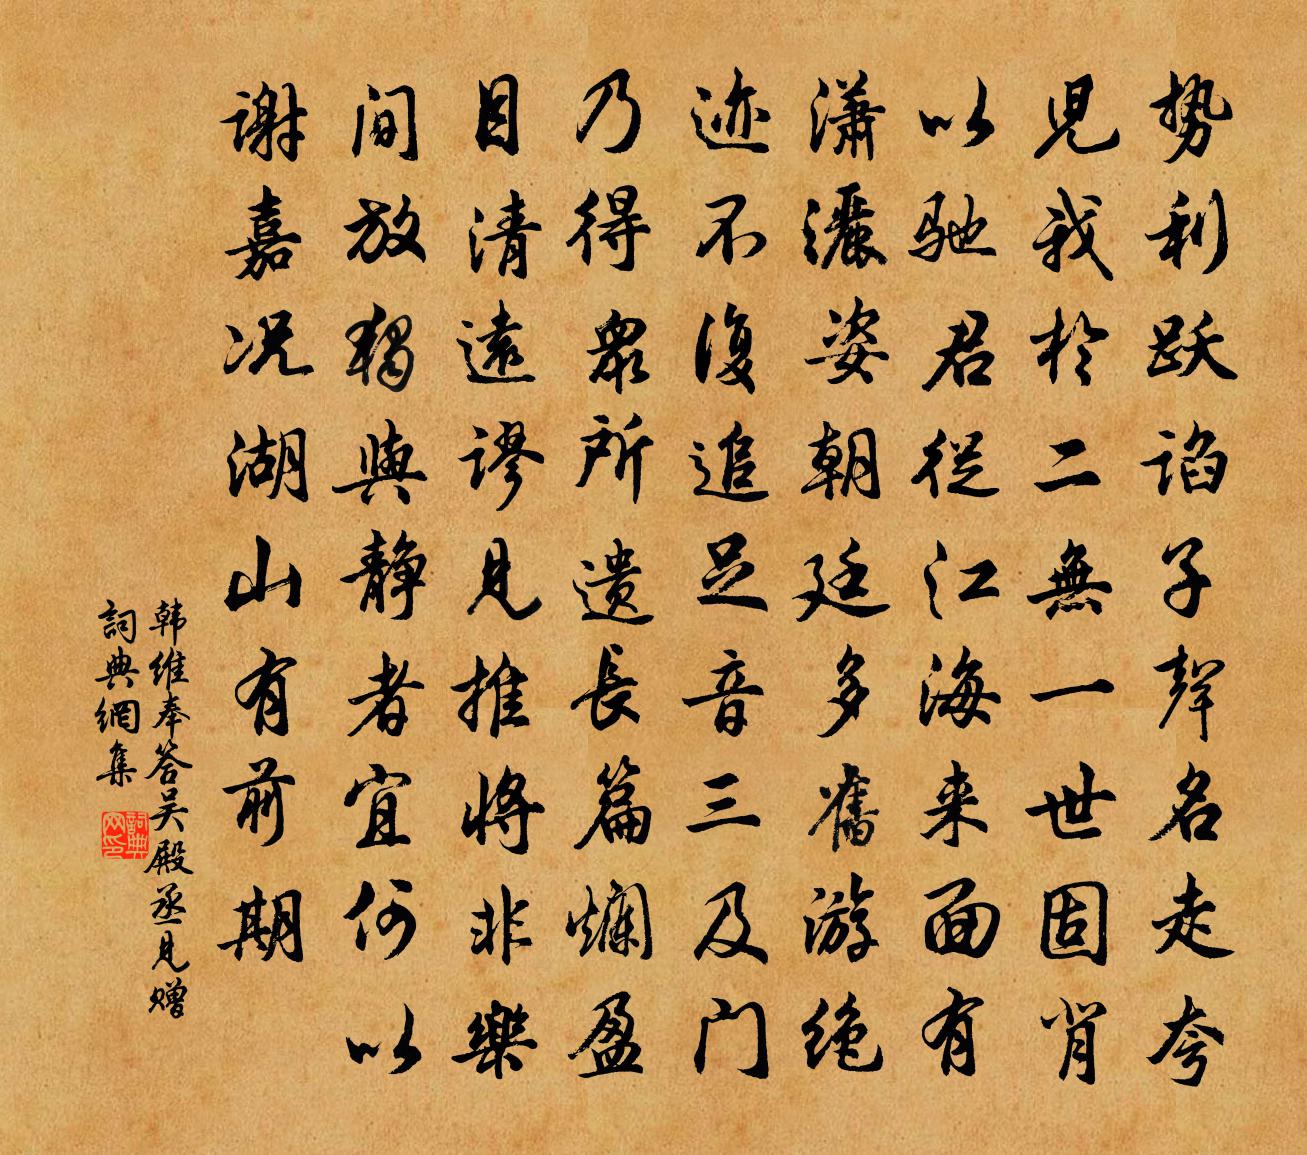 势利跃谄子聲名走夸
児我於二無一世固肖
以驰君従江海来面有
瀟灑姿朝廷多舊游绝
迹不復追足音三及门
乃得衆所遗長篇爛盈
目清遠謬見推将非樂
间放獨與静者宜何以
謝嘉况湖山有前期
韩维奉答吴殿丞見赠
詞典網集
詞典网印